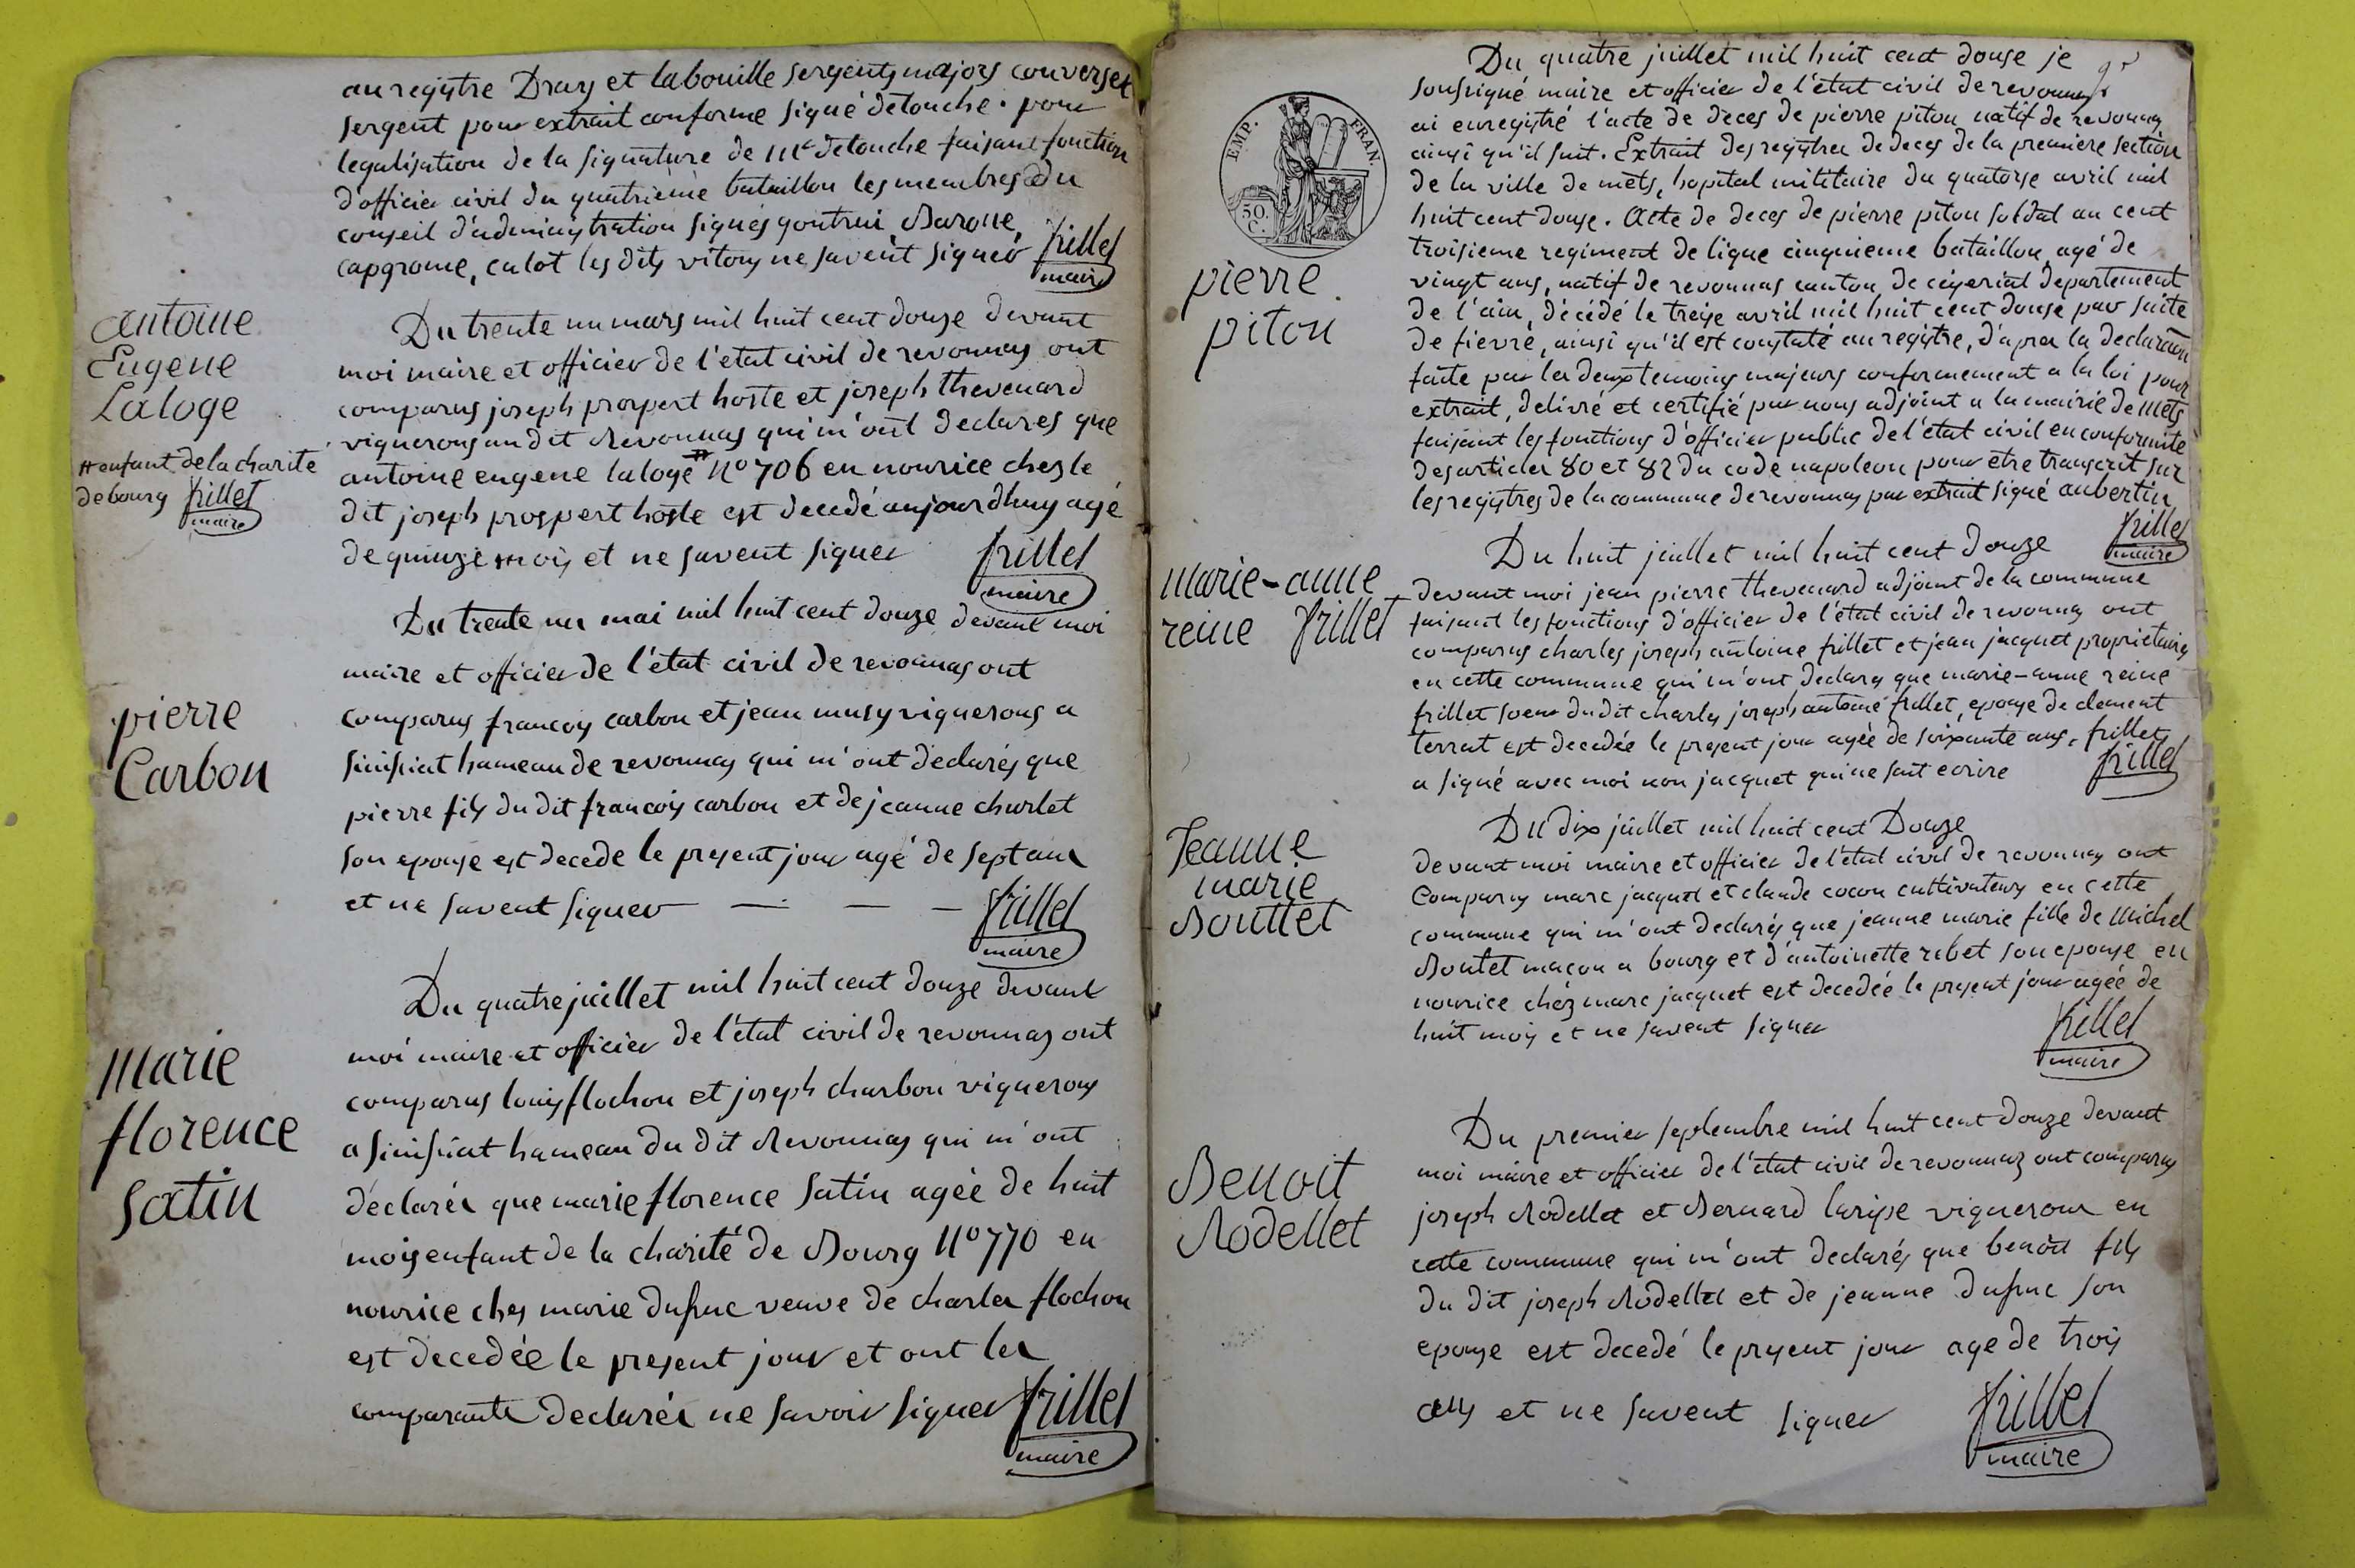 au registre Dray et labouille sergents majors converset
sergent pour extrait conforme signé detouche. pour
legalisation de la signature de Mr detouche faisant fonction
d'officier civil du quatrième bataillon les membres du
conseil d'administration signés Barolle,
capgrome, culot les dits vitory ne savent signer frillet
maire
Antoine
Eugene
Laloge
# enfant de la charite
de bourg frillet
maire
Du trente un mars mil huit cent douze devant
moi maire et officier de l'état civil de revonnas ont
comparus joseph prospert hoste et joseph thevenard
vignerons au dit Revonnas qui m'ont declarés que
antoine eugene laloge # N° 706 en nourice chez le
dit joseph prospert hoste est decedé aujourdhuy agé
de quinze mois et ne savent signer frillet
maire
pierre
Carbon
Du trente un mai mil huit cent douze devant moi
maire et officier de l'état civil de revonnas ont
comparus francois carbon et jean musy vignerons a
sinissiat hameau de revonnas qui m'ont declarés que
pierre fils du dit francois carbon et de jeanne churlet
son epouse est decede le present jour agé de sept ans
et ne savent signer — — — frillet
maire
Marie
florence
Satin
Du quatre juillet mil huit cent douze devant
moi maire et officier de l'état civil de revonnas ont
comparus louis flochon et joseph charbon vignerons
a sinissiat hameau du dit Revonnas qui m'ont
déclarés que marie florence Satin agée de huit
mois enfant de la charité de Bourg N° 770 en
nourice ches marie dufruc veuve de charles flochon
est decedée le present jour et ont les
comparants declarés ne savoir signer frillet
maire
EMP. FRAN.
50.
C.
pierre
piton
Du quatre juillet mil huit cent douse je
soussigné maire et officier de l'état civil de revonnas
ai enregistré l'acte de deces de pierre piton natif de revonnas
ainsi qu'il suit. Extrait des registres de deces de la premiere section
de la ville de mets, hopital militaire du quatorse avril mil
huit cent douse. Acte de deces de pierre piton soldat au cent
troisieme regiment de ligne cinquieme bataillon, agé de
vingt ans, natif de revonnas canton de ceyseriat departement
de l'ain, décédé le treise avril mil huit cent douse par suite
de fievre, ainsi qu'il est constaté au registre, d'apres la declaration
faite par les deux temoins majeurs conformement a la loi pour
extrait, delivré et certifié par nous adjoint a la mairie de Mets
faisant les fonctions d'officier public de l'état civil en conformité
des articles 80 et 82 du code napoleon pour être transcrit sur
les registres de la commune de revonnas par extrait signé aubertin
frillet
maire
Marie-anne
reine frillet
Du huit juillet mil huit cent douze
devant moi jean pierre thevenard adjoint de la commune
faisant les fonctions d'officier de l'état civil de revonnas ont
comparus charles joseph antoine frillet et jean jacquet proprietaires
en cette commune qui m'ont declarés que marie-anne reine
frillet soeur du dit charles joseph antoine frillet, epouse de clement
terrat est decedée le present jour agée de soixante ans, frillet
a signé avec moi non jacquet qui ne sait ecrire frillet
Jeanne
marie
Bouttet
Du dix juillet mil huit cent Douze
devant moi maire et officier de l'état civil de revonnas ont
Comparus marc jacquet et claude cocon cultivateurs en cette
commune qui m'ont declarés que jeanne marie fille de Michel
Boutet maçon a bourg et d'antoinette rebet son epouse en
nourice chéz marc jacquet est decedée le present jour agée de
huit mois et ne savent signer frillet
maire
Benoit
Rodellet
Du premier septembre mil huit cent douze devant
moi maire et officier de l'état civil de revonnas ont comparus
joseph Rodellet et Bernard laripe vignerons en
cette commune qui m'ont declarés que benoit fils
du dit joseph Rodellet et de jeanne dufruc son
epouse est decedé le present jour age de trois
ans et ne savent signer frillet
maire